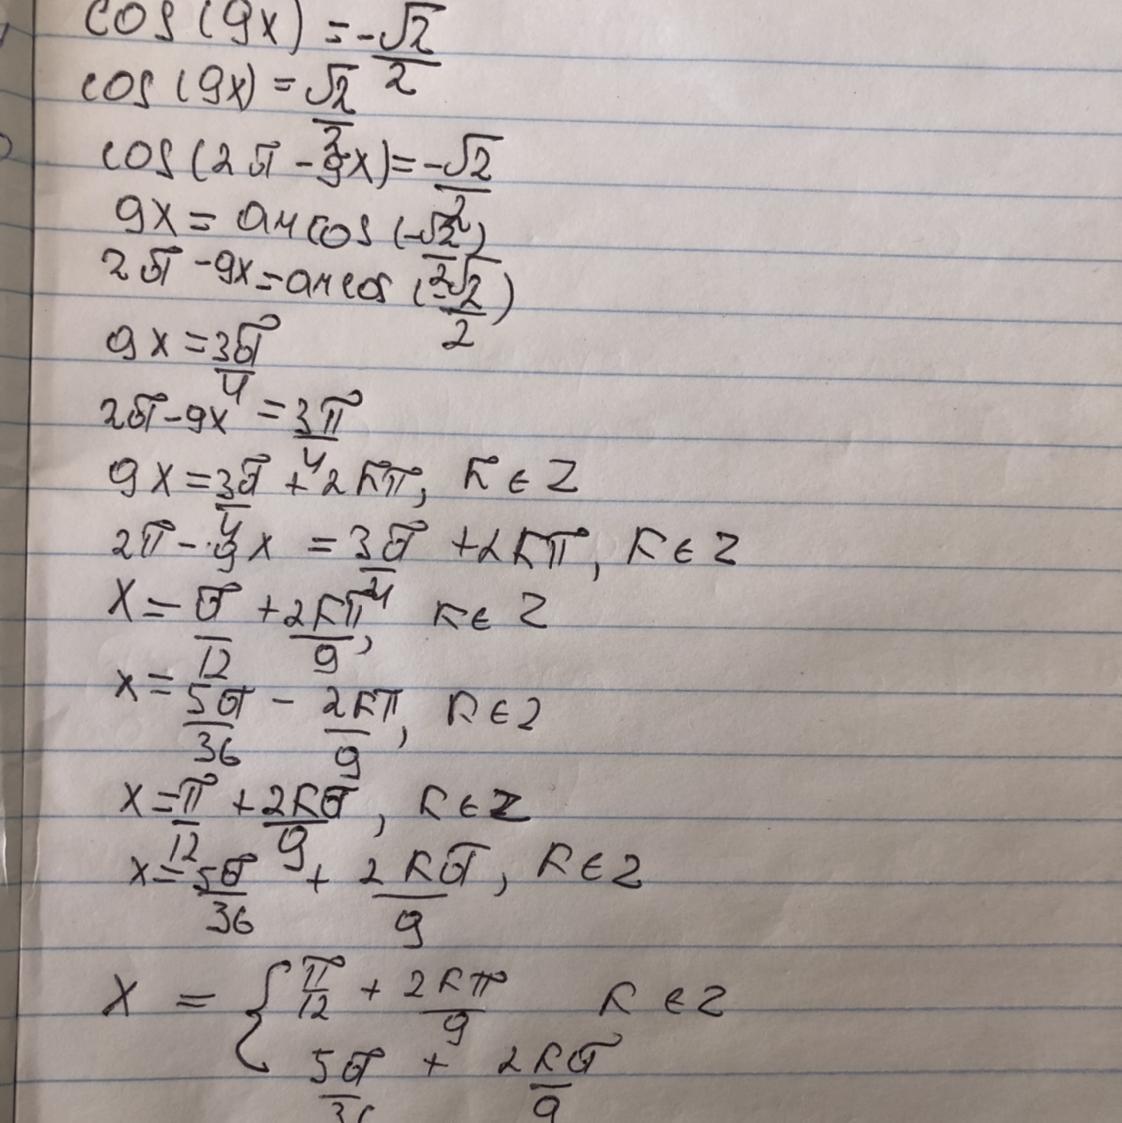 cos(9x) = -√2/2
cos(9x) = √2/2
cos(2π - 9x) = -√2/2
9x = arccos(-√2/2)
2π - 9x = arccos(-√2/2)
9x = 3π/4
2π - 9x = 3π/4
9x = 3π/4 + 2kπ, k ∈ Z
2π - 9x = 3π/4 + 2kπ, k ∈ Z
x = π/12 + 2kπ/9, k ∈ Z
x = 5π/36 - 2kπ/9, k ∈ Z
x = π/12 + 2kπ/9, k ∈ Z
x = 5π/36 + 2kπ/9, k ∈ Z
x = { π/12 + 2kπ/9 k ∈ Z
5π/36 + 2kπ/9